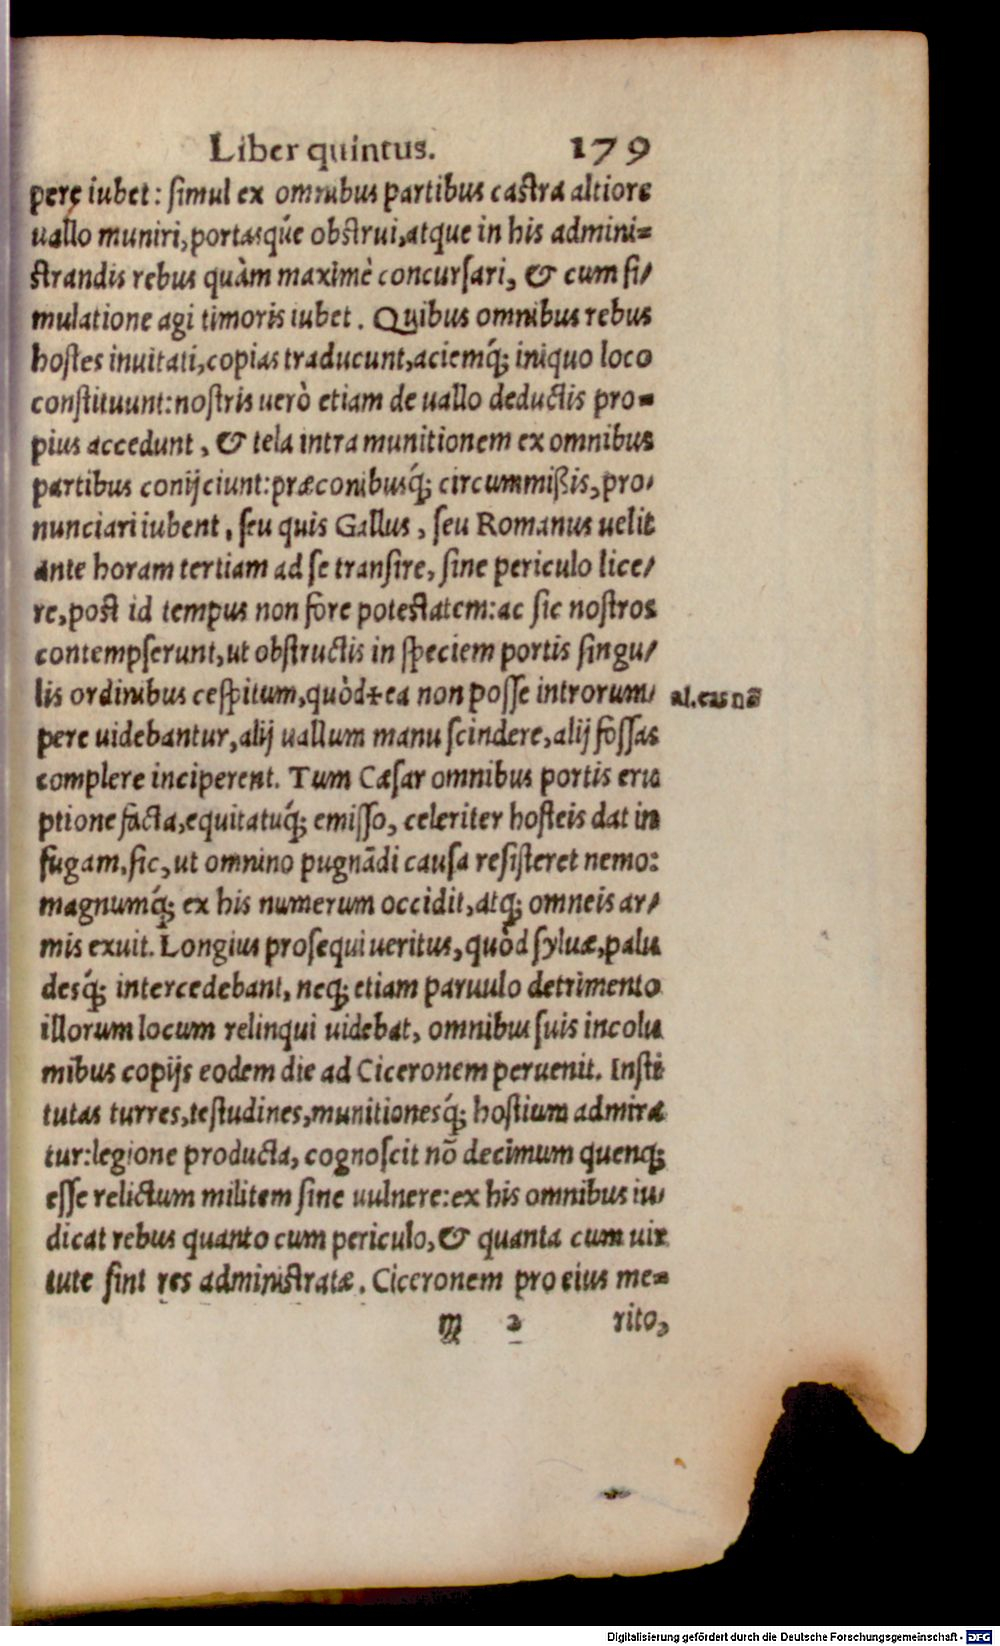 Liber quintus. 179
pere iubet: simul ex omnibus partibus castra altiore
uallo muniri, portasq́ue obstrui, atque in his admini=
strandis rebus quàm maximè concursari, & cum si/
mulatione agi timoris iubet. Quibus omnibus rebus
hostes inuitati, copias traducunt, aciemq́; iniquo loco
constituunt: nostris uerò etiam de uallo deductis pro=
pius accedunt, & tela intra munitionem ex omnibus
partibus conijciunt: præconibusq́; circummißis, pro/
nunciari iubent, seu quis Gallus, seu Romanus uelit
ante horam tertiam ad se transire, sine periculo lice/
re, post id tempus non fore potestatem: ac sic nostros
contempserunt, ut obstructis in speciem portis singu/
lis ordinibus cespitum, quòd + ea non posse introrum/
al. eas nō
pere uidebantur, alij uallum manu scindere, alij fossas
complere inciperent. Tum Cæsar omnibus portis eru
ptione facta, equitatuq́; emisso, celeriter hosteis dat in
fugam, sic, ut omnino pugnādi causa resisteret nemo:
magnumq́; ex his numerum occidit, atq; omneis ar/
mis exuit. Longius prosequi ueritus, quòd syluæ, palu
desq́; intercedebant, neq; etiam paruulo detrimento
illorum locum relinqui uidebat, omnibus suis incolu
mibus copijs eodem die ad Ciceronem peruenit. Insti
tutas turres, testudines, munitionesq́; hostium admira
tur: legione producta, cognoscit nō decimum quenq;
esse relictum militem sine uulnere: ex his omnibus iu/
dicat rebus quanto cum periculo, & quanta cum uir
tute sint res administratæ. Ciceronem pro eius me=
m 2 rito,
Digitalisierung gefördert durch die Deutsche Forschungsgemeinschaft - DFG